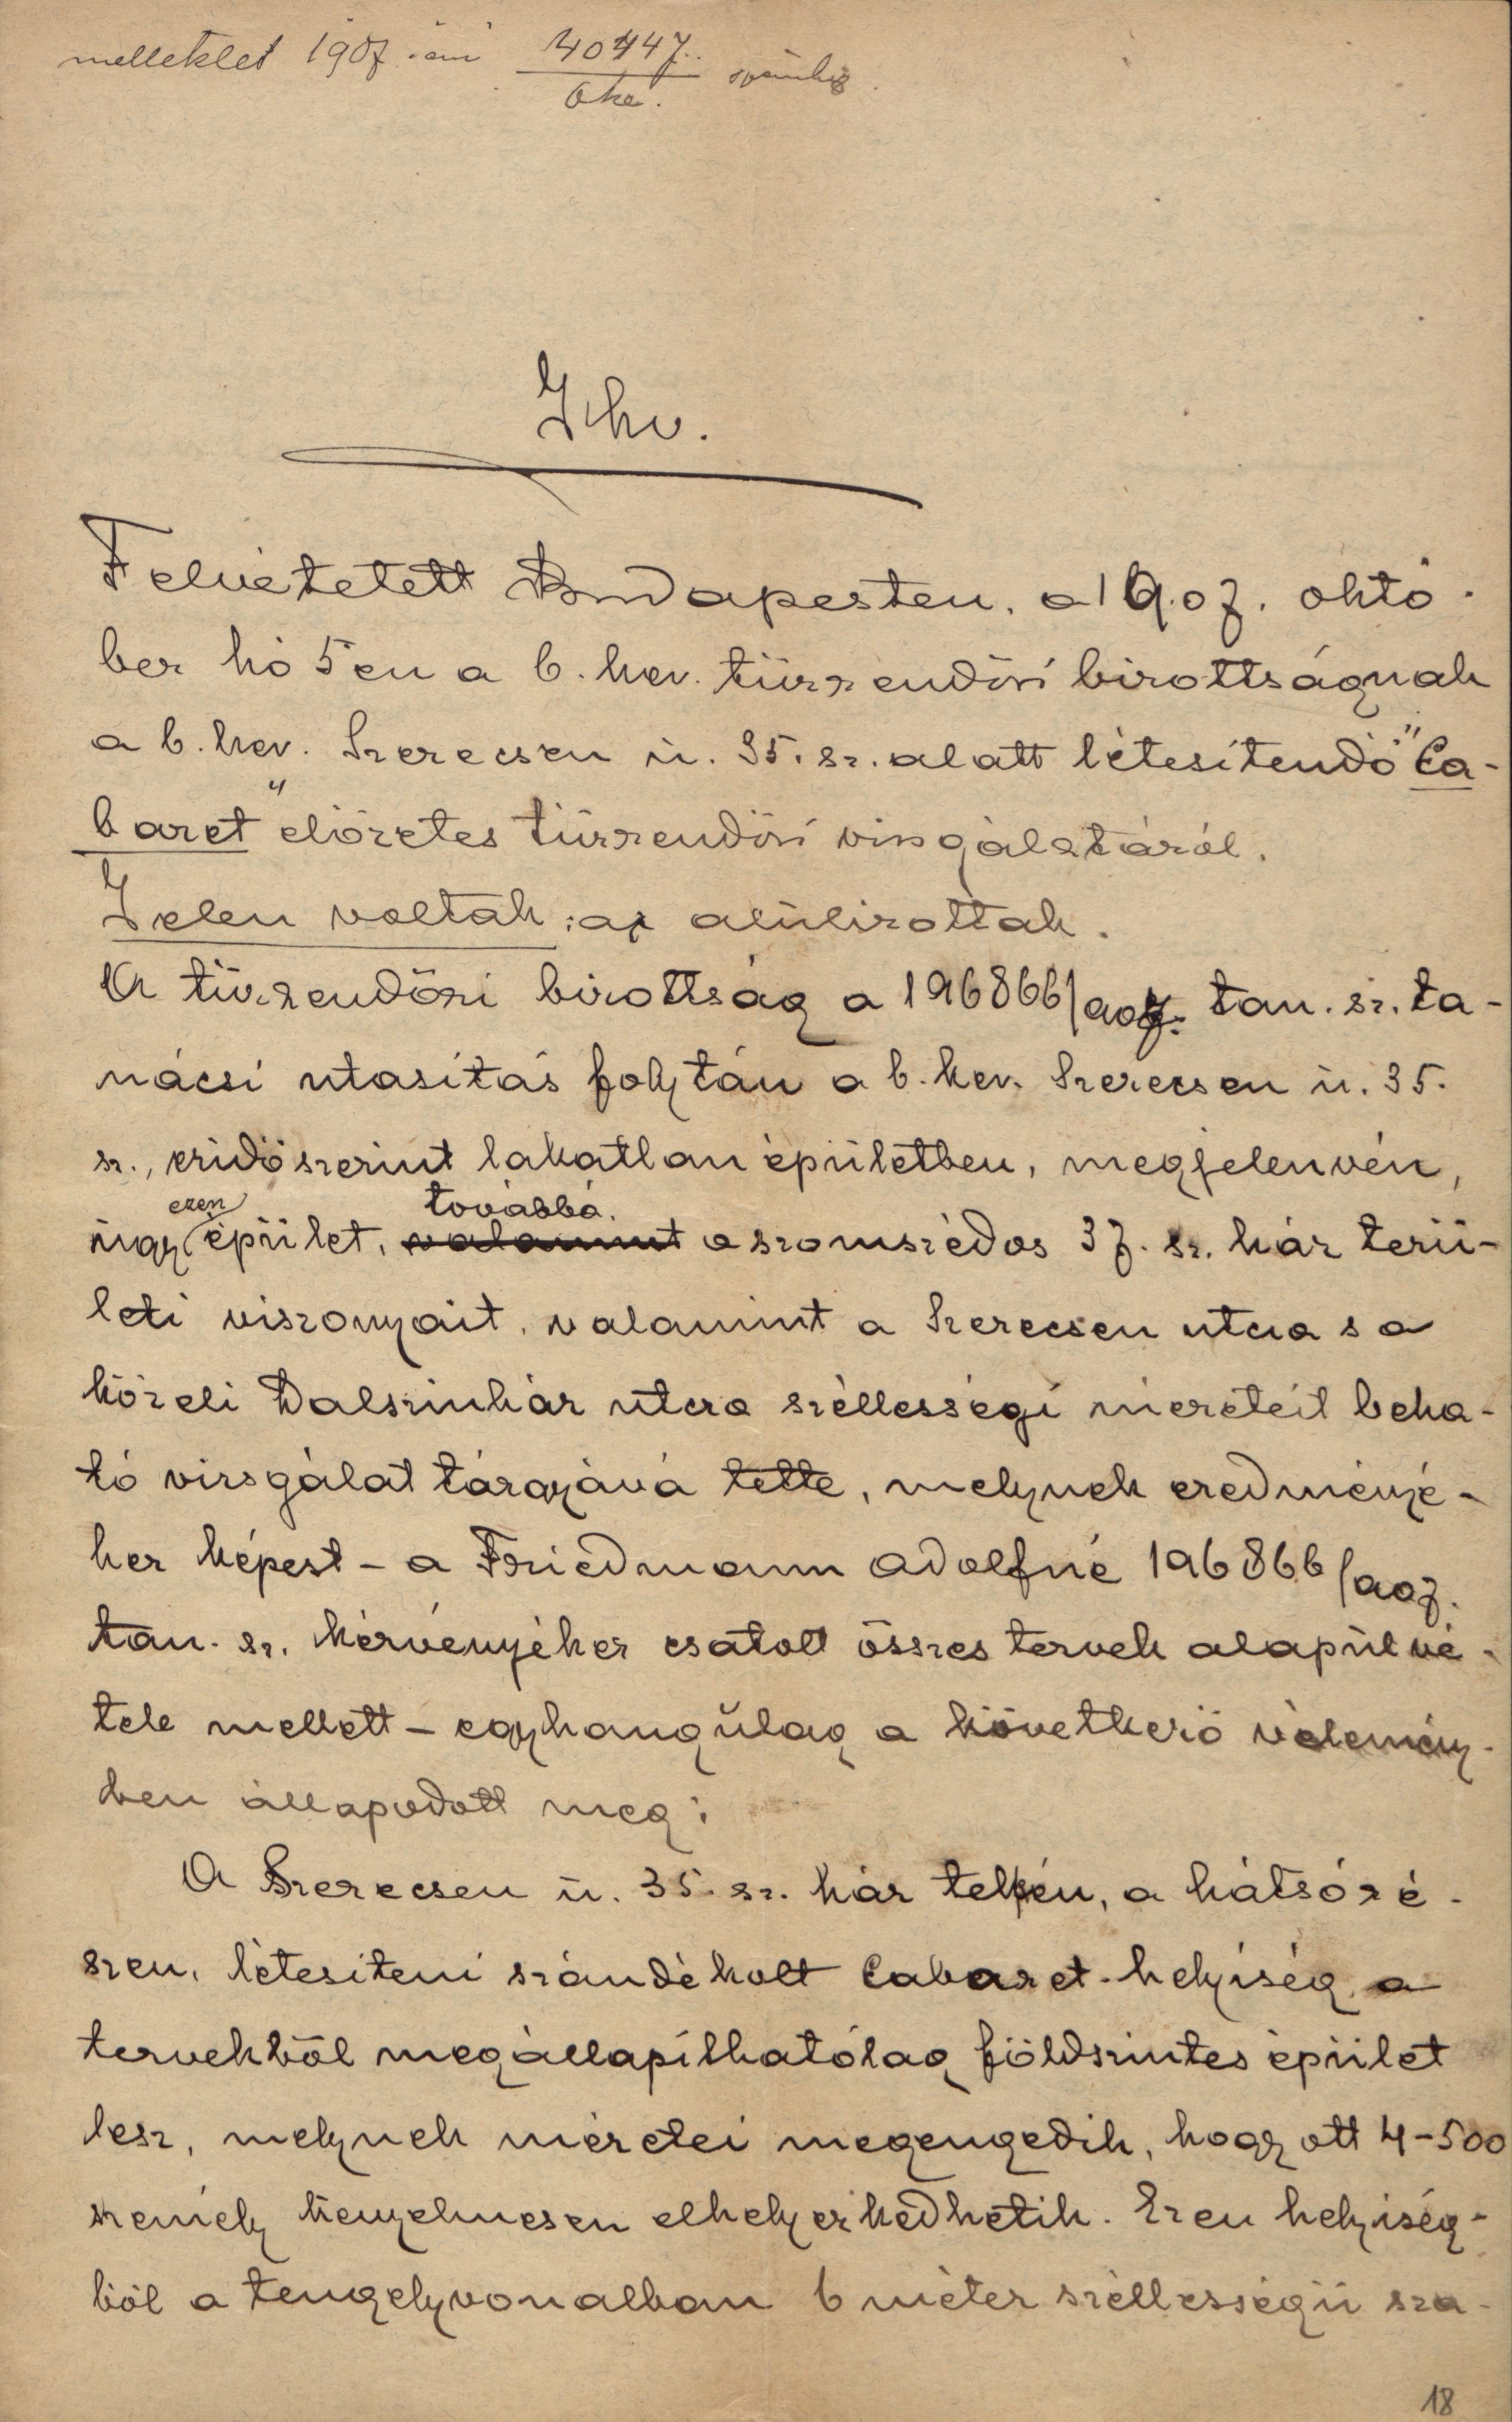 melléklet 1907. évi 40447. számhoz
Jkv.
Felvétetett Budapesten, a 1907. októ-
ber hó 5 én a 6. ker. tűzrendőri bizottságnak
a 6. ker. Szerecsen u. 35. sz. alatt létesítendő "Ca-
baret" előzetes tűzrendőri vizsgálatáról.
Jelen voltak: az alúlirottak.
A tűzrendőri bizottság a 196866/907. tan. sz. ta-
nácsi utasítás folytán a 6. ker. Szerecsen u. 35.
sz., ezidőszerint lakatlan épületben, megjelenvén,
úgy ezen épület, valamint továbbá a szomszédos 37. sz. ház terü-
leti viszonyait, valamint a Szerecsen utca s a
közeli Dalszinház utca szélességi méreteit beha-
tó vizsgálat tárgyává tette, melynek eredményé-
hez képest - a Friedmann Adolfné 196866/907.
tan. sz. kérvényéhez csatolt összes tervek alapúl vé-
tele mellett - egyhangúlag a következő vélemény-
ben állapodott meg:
A Szerecsen u. 35. sz. ház telkén, a hátsó ré-
szen, létesíteni szándékolt Cabaret-helyiség a
tervekből megállapíthatólag földszintes épület
lesz, melynek méretei megengedik, hogy ott 4-500
személy kényelmesen elhelyezkedhetik. Ezen helyiség-
ből a tengelyvonalban 6 méter szélességű sza-
18